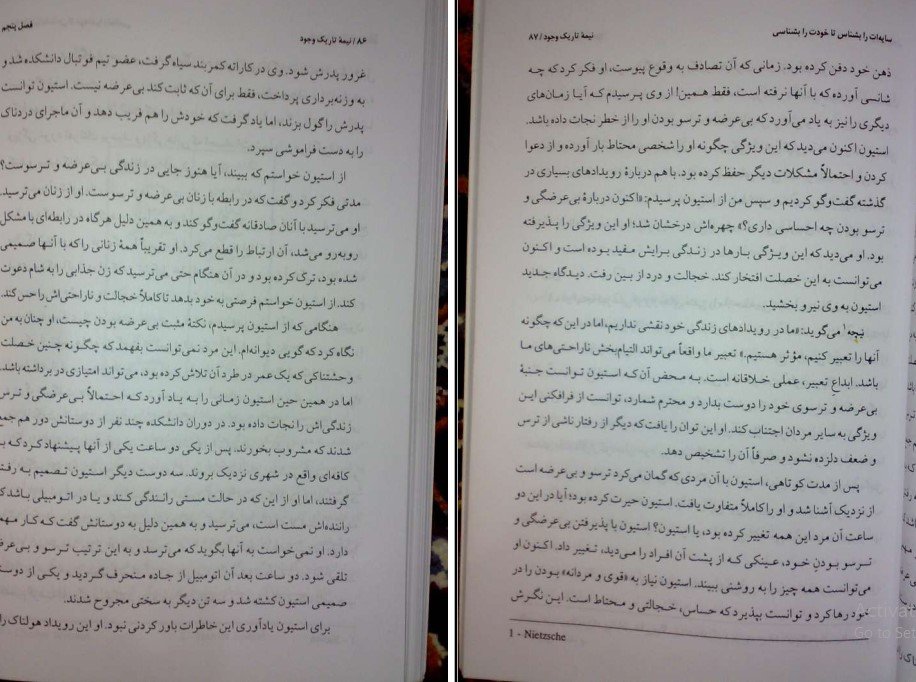 ۸۶ / نیمهٔ تاریک وجود
فصل پنجم
غرور پدرش شود. وی در کاراته کمربند سیاه گرفت، عضو تیم فوتبال دانشکده شد و
به وزنه‌برداری پرداخت، فقط برای آن که ثابت کند بی‌عرضه نیست. استیون توانست
پدرش را گول بزند، اما یاد گرفت که خودش را هم فریب دهد و آن ماجرای دردناک
را به دست فراموشی سپرد.
از استیون خواستم که ببیند، آیا هنوز جایی در زندگی بی‌عرضه و ترسوست؟
مدتی فکر کرد و گفت که در رابطه با زنان بی‌عرضه و ترسوست. او از زنان می‌ترسید.
او می‌ترسید با آنان صادقانه گفت‌وگو کند و به همین دلیل هرگاه در رابطه‌ای با مشکل
روبه‌رو می‌شد، آن ارتباط را قطع می‌کرد. او تقریباً همهٔ زنانی را که با آنها صمیمی
شده بود، ترک کرده بود و در آن هنگام حتی می‌ترسید که زن جذابی را به شام دعوت
کند. از استیون خواستم فرصتی به خود بدهد تا کاملاً خجالت و ناراحتی‌اش را حس کند.
هنگامی که از استیون پرسیدم، نکتهٔ مثبت بی‌عرضه بودن چیست، او چنان به من
نگاه کرد که گویی دیوانه‌ام. این مرد نمی‌توانست بفهمد که چگونه چنین خصلت
وحشتناکی که یک عمر در طرد آن تلاش کرده بود، می‌تواند امتیازی در برداشته باشد.
اما در همین حین استیون زمانی را به یاد آورد که احتمالاً بی‌عرضگی و ترس
زندگی‌اش را نجات داده بود. در دوران دانشکده چند نفر از دوستانش دور هم جمع
شدند که مشروب بخورند. پس از یکی دو ساعت یکی از آنها پیشنهاد کرد که به
کافه‌ای واقع در شهری نزدیک بروند. سه دوست دیگر استیون تصمیم به رفتن
گرفتند، اما او از این که در حالت مستی رانندگی کند و یا در اتومبیلی باشد که
راننده‌اش مست است، می‌ترسید و به همین دلیل به دوستانش گفت که کار مهمی
دارد. او نمی‌خواست به آنها بگوید که می‌ترسد و به این ترتیب ترسو و بی‌عرضه
تلقی شود. دو ساعت بعد آن اتومبیل از جاده منحرف گردید و یکی از دوستان
صمیمی استیون کشته شد و سه تن دیگر به سختی مجروح شدند.
برای استیون یادآوری این خاطرات باور کردنی نبود. او این رویداد هولناک را
نیمهٔ تاریک وجود / ۸۷
سایه‌ات را بشناس تا خودت را بشناسی
ذهن خود دفن کرده بود. زمانی که آن تصادف به وقوع پیوست، او فکر کرد که چه
شانسی آورده که با آنها نرفته است، فقط همین! از وی پرسیدم که آیا زمان‌های
دیگری را نیز به یاد می‌آورد که بی‌عرضه و ترسو بودن او را از خطر نجات داده باشد.
استیون اکنون می‌دید که این ویژگی چگونه او را شخصی محتاط بار آورده و از دعوا
کردن و احتمالاً مشکلات دیگر حفظ کرده بود. با هم دربارهٔ رویدادهای بسیاری در
گذشته گفت‌وگو کردیم و سپس من از استیون پرسیدم: «اکنون دربارهٔ بی‌عرضگی و
ترسو بودن چه احساسی داری؟» چهره‌اش درخشان شد؛ او این ویژگی را پذیرفته
بود. او می‌دید که این ویژگی بارها در زندگی برایش مفید بوده است و اکنون
می‌توانست به این خصلت افتخار کند. خجالت و درد از بین رفت. دیدگاه جدید
استیون به وی نیرو بخشید.
نیچه۱ می‌گوید: «ما در رویدادهای زندگی خود نقشی نداریم، اما در این که چگونه
آنها را تعبیر کنیم، مؤثر هستیم.» تعبیر ما واقعاً می‌تواند التیام‌بخش ناراحتی‌های ما
باشد. ابداع تعبیر، عملی خلاقانه است. به محض آن که استیون توانست جنبهٔ
بی‌عرضه و ترسوی خود را دوست بدارد و محترم شمارد، توانست از فرافکنی این
ویژگی به سایر مردان اجتناب کند. او این توان را یافت که دیگر از رفتار ناشی از ترس
و ضعف دلزده نشود و صرفاً آن را تشخیص دهد.
پس از مدت کوتاهی، استیون با آن مردی که گمان می‌کرد ترسو و بی‌عرضه است
از نزدیک آشنا شد و او را کاملاً متفاوت یافت. استیون حیرت کرده بود؛ آیا در این دو
ساعت آن مرد این همه تغییر کرده بود، یا استیون؟ استیون با پذیرفتن بی‌عرضگی و
ترسو بودن خود، عینکی که از پشت آن افراد را می‌دید، تغییر داد. اکنون او
می‌توانست همه چیز را به روشنی ببیند. استیون نیاز به «قوی و مردانه» بودن را در
خود رها کرد و توانست بپذیرد که حساس، خجالتی و محتاط است. این نگرش
1 - Nietzsche